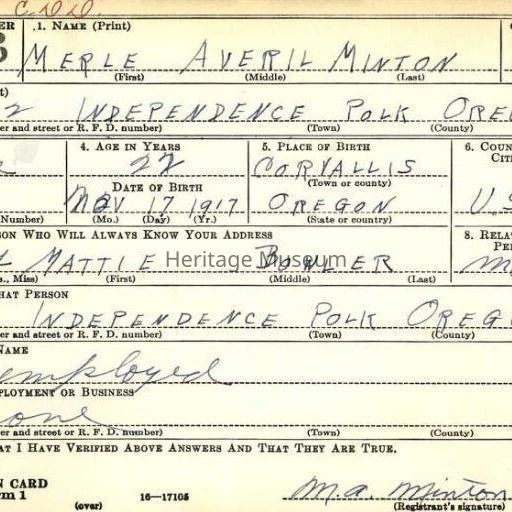 C.D.D.
ER 1. NAME (Print)
MERLE AVERIL MINTON
(First) (Middle) (Last)
2 INDEPENDENCE POLK OREG
er and street or R. F. D. number) (Town) (County)
4. AGE IN YEARS 5. PLACE OF BIRTH 6. COUN
22 CORVALLIS CIT
(Town or county)
DATE OF BIRTH
NOV 17 1917 OREGON U.S
Number) (Mo.) (Day) (Yr.) (State or country)
SON WHO WILL ALWAYS KNOW YOUR ADDRESS 8. RELA
PE
MATTIE BOWLER
s., Miss) (First) (Middle) (Last)
HAT PERSON
INDEPENDENCE POLK OREG
er and street or R. F. D. number) (Town) (County)
NAME
employed
PLOYMENT OR BUSINESS
one
er and street or R. F. D. number) (Town) (County)
AT I HAVE VERIFIED ABOVE ANSWERS AND THAT THEY ARE TRUE.
N CARD
rm 1 (over) 16—17105 M. A. Minton
(Registrant's signature)
Heritage Museum